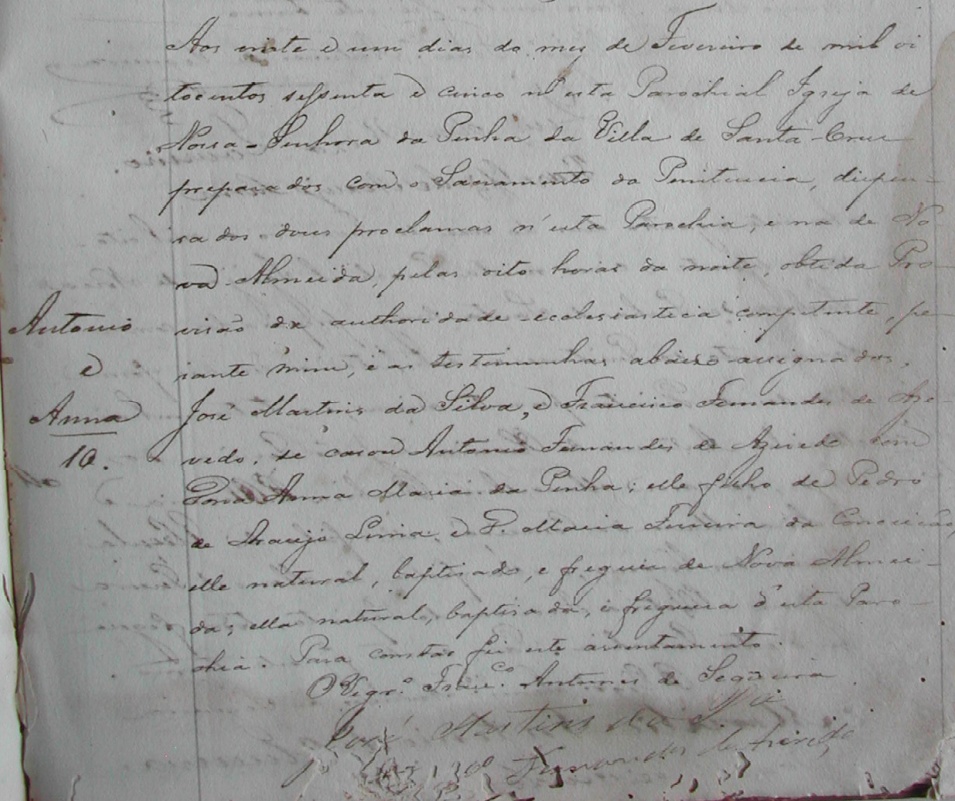 Aos vinte e um dias do mez de Fevereiro de mil oi
tocentos sessenta e cinco n'esta Parochial Igreja de
Nossa-Senhora da Penha da Villa de Santa-Cruz
preparados com o Sacramento da Penitencia, dispen-
sados dous proclamas n'esta Parochia, e na de No-
va Almeida, pelas oito horas da noite, obtida Pro-
visão da authoridade ecclesiastica competente, pe-
rante mim, e as testimunhas abaixo assignados,
José Martins da Silva, e Francisco Fernandes de Aze-
vedo, se casou Antonio Fernandes de Azeredo com
Dona Anna Maria da Penha; elle filho de Pedro
de Araujo Lima e D. Maria Ferreira da Conceicão,
elle natural, baptisado, e freguez de Nova Almei-
da; ella natural, baptisada, e fregueza d'esta Paro
chia. Para constar fiz este assentamento.
O Vigr.º Franc.co Antunes de Sequeira
José Martins da
Fernandes de
Antonio
e
Anna
10.